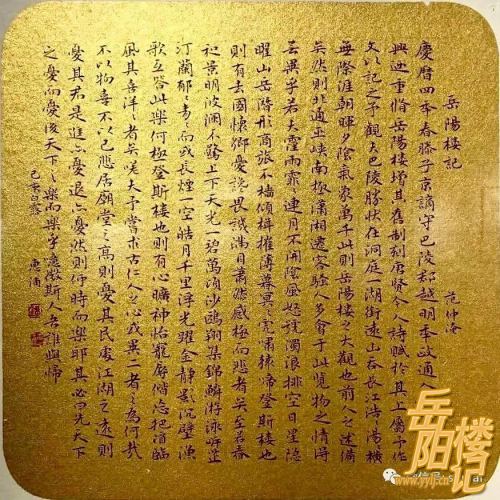 岳陽樓記
范仲淹
慶曆四年春滕子京謫守巴陵郡越明年政通人
興迺重脩岳陽樓增其舊制刻唐賢今人詩賦於其上屬予作
文以記之予觀夫巴陵勝狀在洞庭一湖銜遠山吞長江浩浩湯湯橫
無際涯朝暉夕陰氣象萬千此則岳陽樓之大觀也前人之述備
矣然則北通巫峽南極瀟湘遷客騷人多會于此覽物之情得
無異乎若夫霪雨霏霏連月不開陰風怒號濁浪排空日星隱
曜山岳潛形商旅不行檣傾楫摧薄暮冥冥虎嘯猿啼登斯樓也
則有去國懷鄉憂讒畏譏滿目蕭然感極而悲者矣至若春
和景明波瀾不驚上下天光一碧萬頃沙鷗翔集錦鱗游泳岸芷
汀蘭郁々青々而或長煙一空皓月千里浮光躍金靜影沉璧漁
歌互答此樂何極登斯樓也則有心曠神怡寵辱偕忘把酒臨
風其喜洋々者矣嗟夫予嘗求古仁人之心或異二者之為何哉
不以物喜不以己悲居廟堂之高則憂其民處江湖之遠則
憂其君是進亦憂退亦憂然則何時而樂耶其必曰先天下
之憂而憂後天下之樂而樂乎噫微斯人吾誰與歸
己亥白露
岳阳楼记